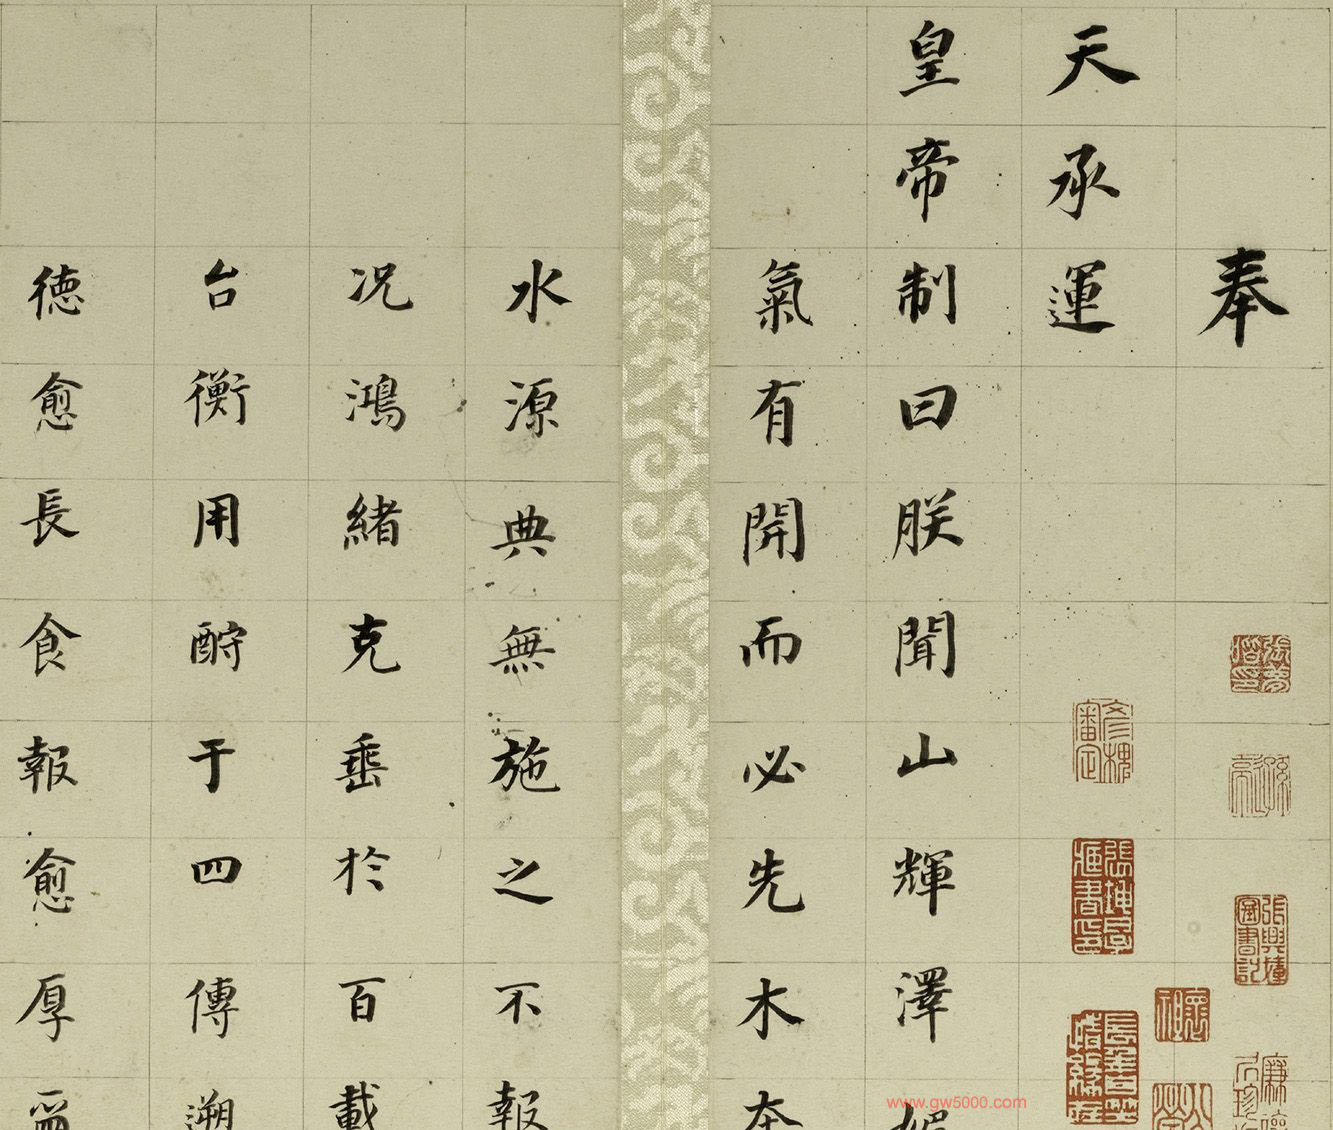 奉
天承運
皇帝制曰朕聞山輝澤媚
氣有開而必先木本
水源典無施之不報
况鴻緒克垂於百載
台衡用酹于四傳溯
德愈長食報愈厚爾
www.gw5000.com